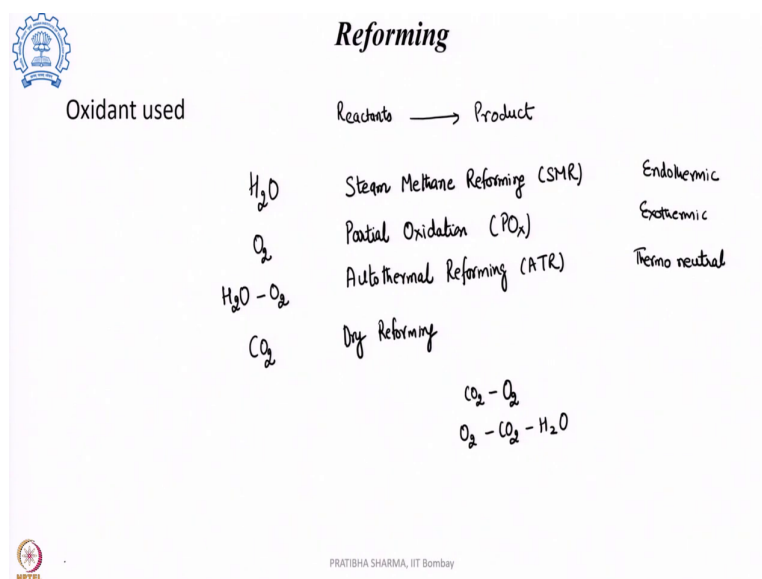 Reforming
Oxidant used
Reactants ⟶ Product
H₂O Steam Methane Reforming (SMR) Endothermic
O₂ Partial Oxidation (POₓ) Exothermic
H₂O - O₂ Autothermal Reforming (ATR) Thermo neutral
CO₂ Dry Reforming
CO₂ - O₂
O₂ - CO₂ - H₂O
PRATIBHA SHARMA, IIT Bombay
NPTEL